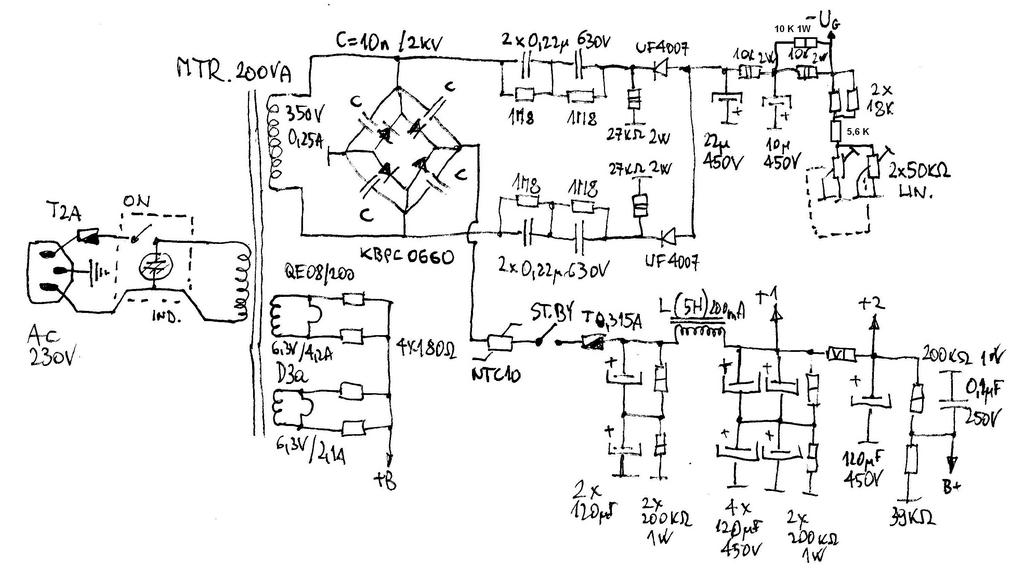 C=10n/2KV
MTR. 200VA
350V
0,25A
C
C
C
C
KBPC 0660
2x0,22µ 630V
UF4007
1M8
1M8
27KΩ 2W
10K 1W
-UG
10K 2W
10K 2W
22µ
450V
10µ
450V
2x
18K
5,6 K
2x50KΩ
LIN.
27KΩ 2W
1M8
1M8
2x0,22µ 630V
UF4007
T2A
ON
IND.
AC
230V
QE08/200
6,3V/4,2A
4x180Ω
D3a
6,3V/2,1A
+B
NTC10
ST.BY
T0,315A
L(5H)200mA
+1
+2
200KΩ 1W
0,1µF
250V
B+
39KΩ
+
+
+
+
+
+
+
+
+
2x
120µF
2x
200KΩ
1W
4x
120µF
450V
2x
200KΩ
1W
120µF
450V